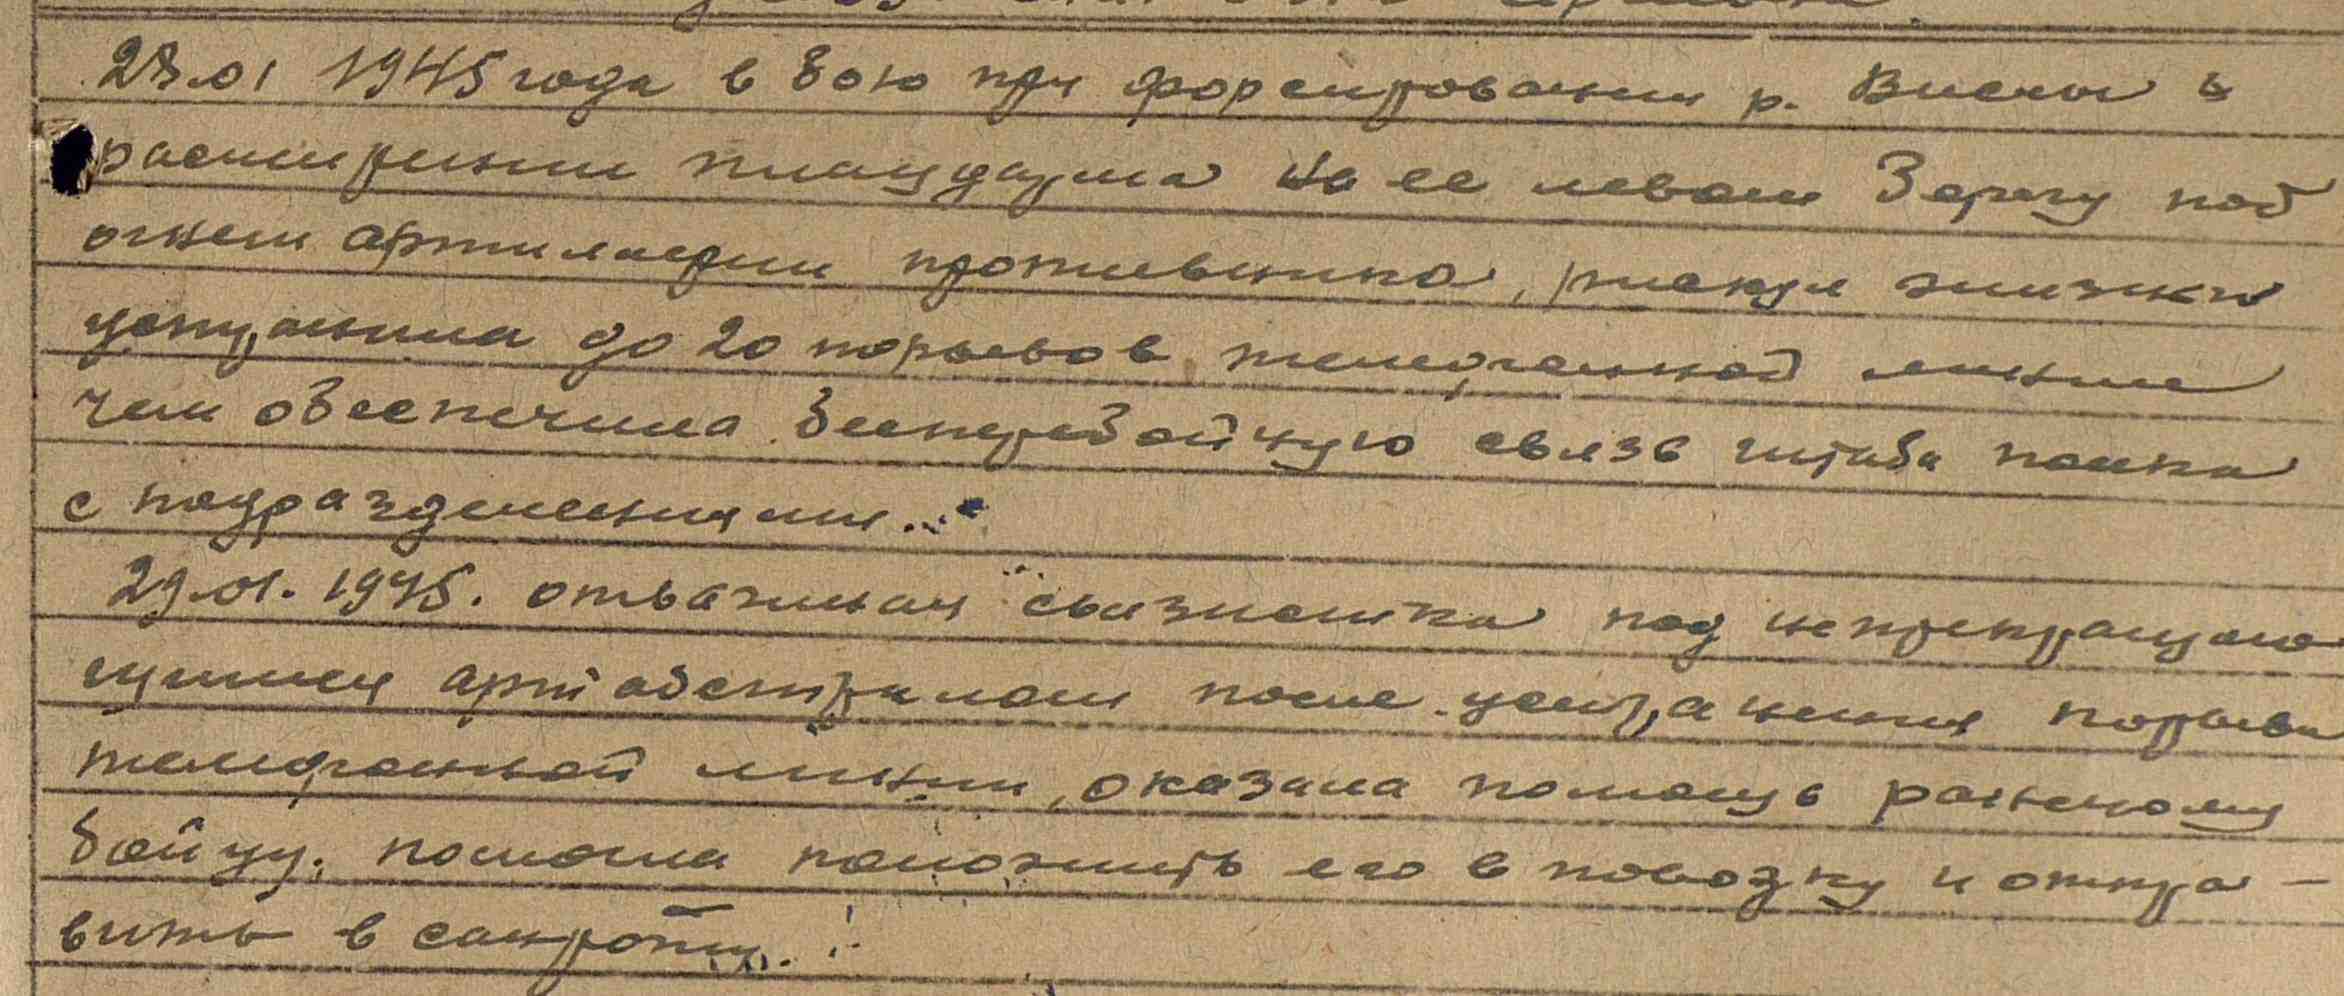 28.01 1945 года в бою при форсировании р. Вислы и
расширении плацдарма на ее левом берегу под
огнем артиллерии противника, рискуя жизнью
устранила до 20 порывов телефонной линии
чем обеспечила бесперебойную связь штаба полка
с подразделениями.
29.01.1945. отважная связистка под непрекращаю
щимся артобстрелом после устранения порыва
телефонной линии, оказала помощь раненому
бойцу, помогла положить его в повозку и отпра-
вить в санроту.